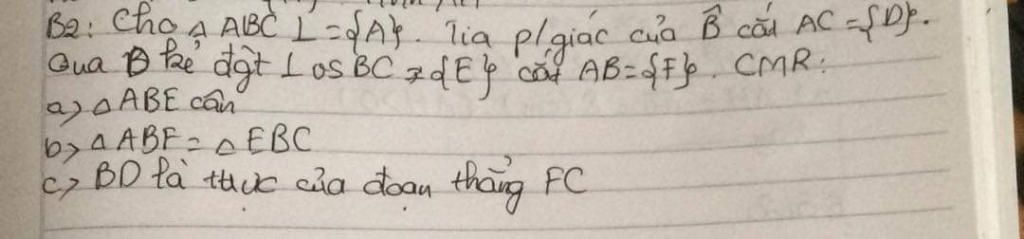 B2: Cho △ ABC ⊥ = {A}. Tia p/giác của B̂ cắt AC = {D}.
Qua D kẻ đgt ⊥ BC = {E} cắt AB = {F}. CMR:
a, △ ABE cân
b, △ ABF = △ EBC
c, BD là của đoạn thẳng FC